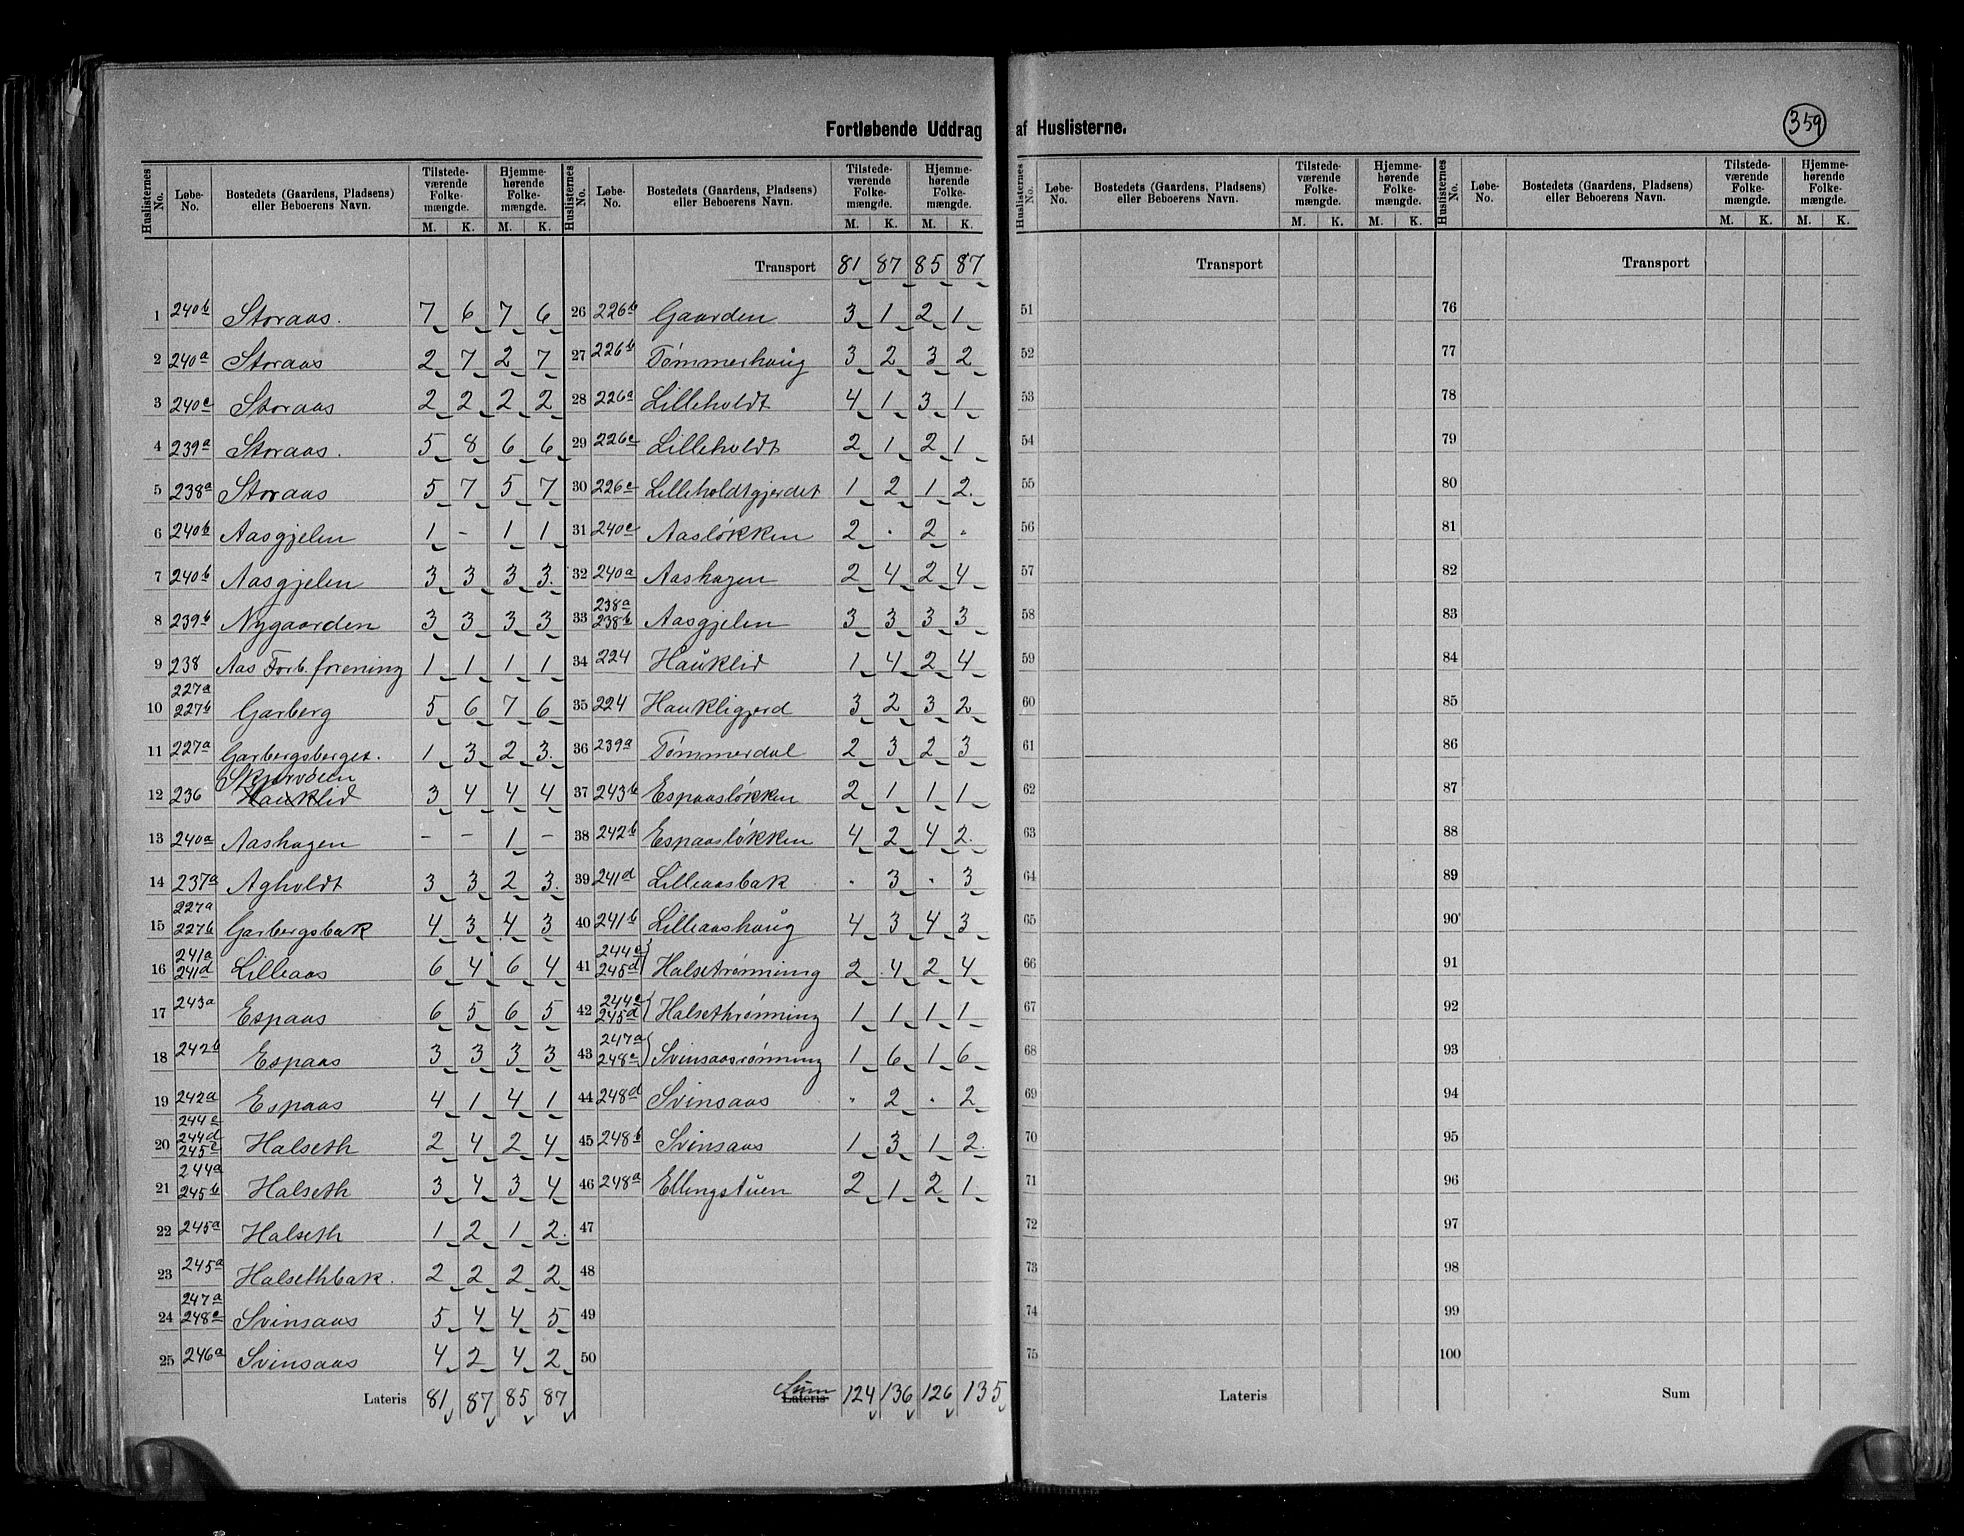 Fortløbende Uddrag af Huslisterne.
359
Huslisternes No. Løbe-No. Bostedets (Gaardens, Pladsens) eller Beboerens Navn. Tilstedeværende Folkemængde. M. K. Hjemmehørende Folkemængde. M. K.
1 240b Storaas. 7 6 7 6
2 240a Storaas 2 7 2 7
3 240c Storaas 2 2 2 2
4 239a Storaas. 5 8 6 6
5 238a Storaas 5 7 5 7
6 240b Aasgjelen 1 - 1 1
7 240b Aasgjelen 3 3 3 3.
8 239b Nygaarden 3 3 3 3
9 238 Aas Forb. forening 1 1 1 1
10 227a 227b Garberg 5 6 7 6
11 227a Garbergsberget. 1 3 2 3.
12 236 Skjørvøien Hauklid 3 4 4 4
13 240a Aashagen - - 1 -
14 237a Agholdt 3 3 2 3.
15 227a 227b Garbergsbak 4 3 4 3
16 241a 241d Lilleaas 6 4 6 4
17 243a Espaas 6 5 6 5
18 242b Espaas 3 3 3 3
19 242a Espaas 4 1 4 1
20 244c 244d 245c Halseth 2 4 2 4
21 244a 245b Halseth 3 4 3 4
22 245a Halseth 1 2 1 2.
23 245a Halsethbak. 2 2 2 2
24 247a 248c Svinsaas 5 4 4 5
25 246a Svinsaas 4 2 4 2
Lateris 81 87 85 87
Huslisternes No. Løbe-No. Bostedets (Gaardens, Pladsens) eller Beboerens Navn. Tilstedeværende Folkemængde. M. K. Hjemmehørende Folkemængde. M. K.
Transport 81 87 85 87
26 226b Gaarden 3 1 2 1
27 226b Tømmerhaug 3 2 3 2
28 226a Lilleholdt 4 1 3 1
29 226c Lilleholdt 2 1 2 1
30 226c Lilleholdtgjerdet 1 2 1 2.
31 240c Aasløkken 2 . 2 .
32 240a Aashagen 2 4 2 4
33 238a 238b Aasgjelen 3 3 3 3
34 224 Hauklid 1 4 2 4
35 224 Haukligjerd 3 2 3 2
36 239a Tømmerdal 2 3 2 3
37 243b Espaasløkken 2 1 1 1
38 242b Espaasløkken 4 2 4 2.
39 241d Lilleaasbak . 3 . 3
40 241b Lilleaashaug 4 3 4 3
41 244a 245d Halsetrønning 2 4 2 4
42 244c 245d Halsethrønning 1 1 1 1
43 247a 248c Svinsaasrønning 1 6 1 6
44 248d Svinsaas . 2 . 2
45 248b Svinsaas 1 3 1 2.
46 248a Ellingstuen 2 1 2 1
47
48
49
50
Sum Lateris 124 136 126 135
Huslisternes No. Løbe-No. Bostedets (Gaardens, Pladsens) eller Beboerens Navn. Tilstedeværende Folkemængde. M. K. Hjemmehørende Folkemængde. M. K.
Transport
51
52
53
54
55
56
57
58
59
60
61
62
63
64
65
66
67
68
69
70
71
72
73
74
75
Lateris
Huslisternes No. Løbe-No. Bostedets (Gaardens, Pladsens) eller Beboerens Navn. Tilstedeværende Folkemængde. M. K. Hjemmehørende Folkemængde. M. K.
Transport
76
77
78
79
80
81
82
83
84
85
86
87
88
89
90
91
92
93
94
95
96
97
98
99
100
Sum